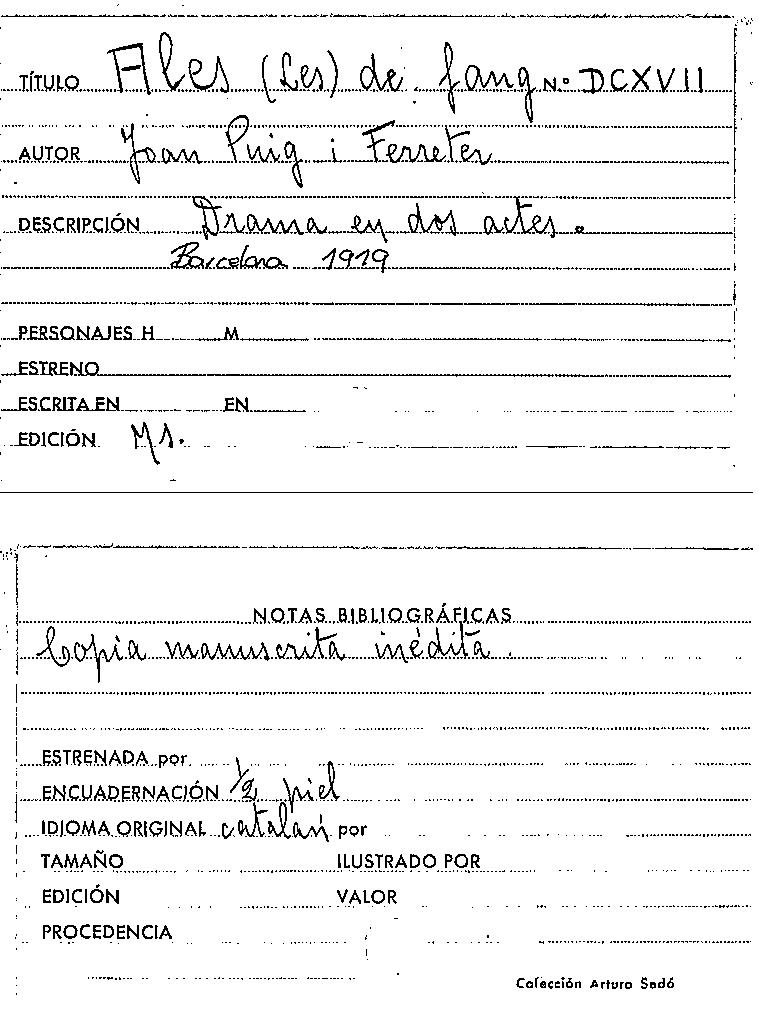 TÍTULO Ales (Les) de fang Nº DCXVII
AUTOR Joan Puig i Ferreter
DESCRIPCIÓN Drama en dos actes.
Barcelona 1919
PERSONAJES H M
ESTRENO
ESCRITA EN EN
EDICIÓN Ms.
NOTAS BIBLIOGRÁFICAS
Copia manuscrita inédita.
ESTRENADA por
ENCUADERNACIÓN 1/2 piel
IDIOMA ORIGINAL catalán por
TAMAÑO ILUSTRADO POR
EDICIÓN VALOR
PROCEDENCIA
Colección Arturo Sedó